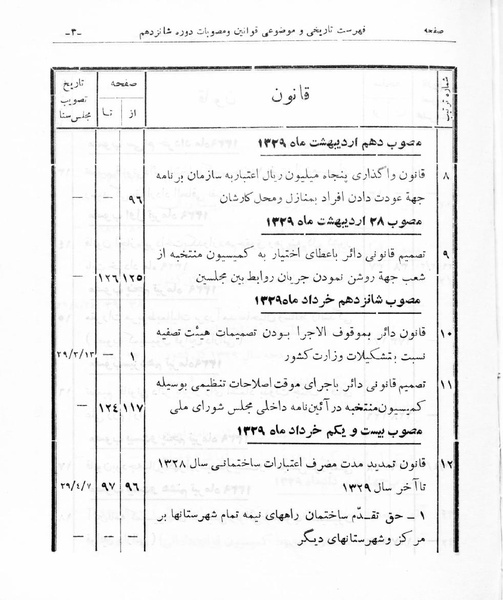 صفحه فهرست تاریخی و موضوعی قوانین ومصوبات دوره شانزدهم -۳-
شماره ترتیب قانون صفحه تاریخ تصویب مجلس سنا
از تا
مصوب دهم اردیبهشت ماه ۱۳۲۹
۸ قانون واگذاری پنجاه میلیون ریال اعتبار به سازمان برنامه
جهة عودت دادن افراد بمنازل ومحل کارشان ۹۶ — —
مصوب ۲۸ اردیبهشت ماه ۱۳۲۹
۹ تصمیم قانونی دائر باعطای اختیار به کمیسیون منتخبه از
شعب جهة روشن نمودن جریان روابط بین مجلسین ۱۲۵ ۱۲۶ —
مصوب شانزدهم خرداد ماه۱۳۲۹
۱۰ قانون دائر بموقوف الاجرا بودن تصمیمات هیئت تصفیه
نسبت بتشکیلات وزارت کشور ۱ — ۲۹/۳/۱۳
۱۱ تصمیم قانونی دائر باجرای موقت اصلاحات تنظیمی بوسیله
کمیسیون منتخبه در آئین‌نامه داخلی مجلس شورای ملی ۱۱۷ ۱۲۴ —
مصوب بیست و یکم خرداد ماه ۱۳۲۹
۱۲ قانون تمدید مدت مصرف اعتبارات ساختمانی سال ۱۳۲۸
تا آخر سال ۱۳۲۹ ۹۶ ۹۷ ۲۹/۴/۷
۱ - حق تقدّم ساختمان راههای نیمه تمام شهرستانها بر
مرکز و شهرستانهای دیگر — — —